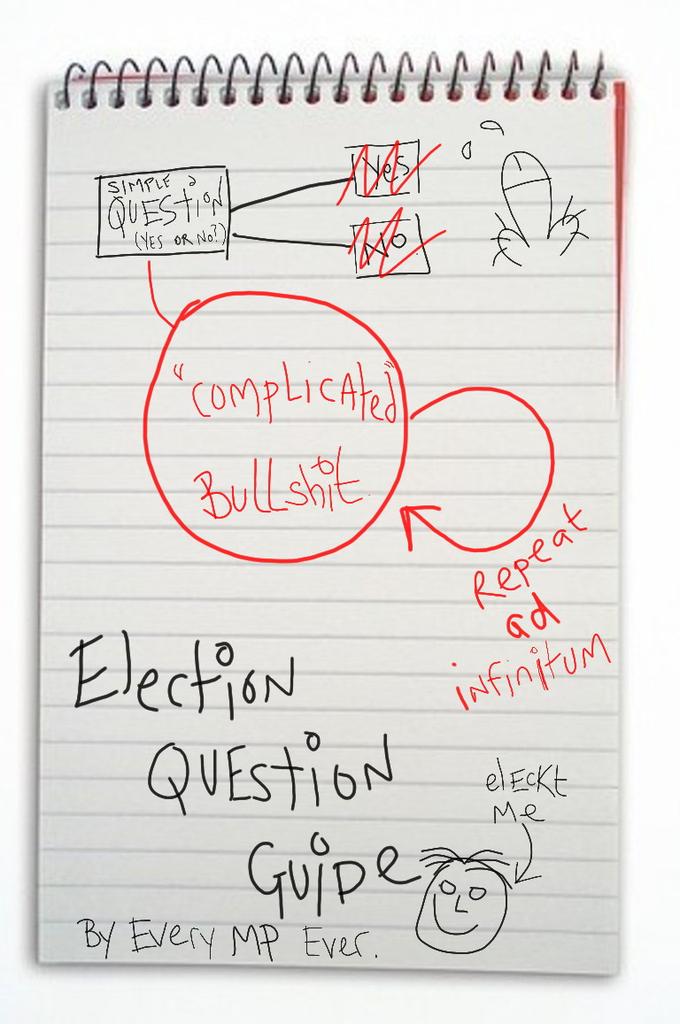 SIMPLE
QUESTION
(YES OR NO?)
Yes
No
"COMPLICAted"
Bullshit
Repeat
ad
infinitum
Election
QUEStioN
GuiDe
elECKt
Me
By Every MP Ever.